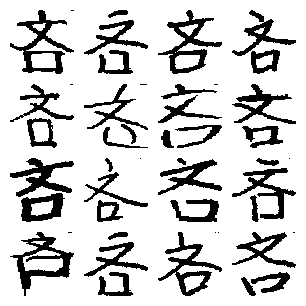 吝吝吝吝
吝吝吝吝
吝吝吝吝
吝吝吝吝